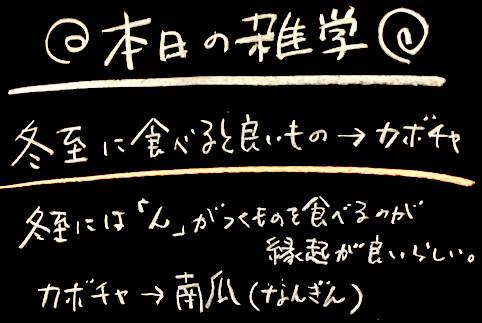 本日の雑学
冬至に食べると良いもの→カボチャ
冬至には「ん」がつくものを食べるのが
縁起が良いらしい。
カボチャ→南瓜(なんぎん)